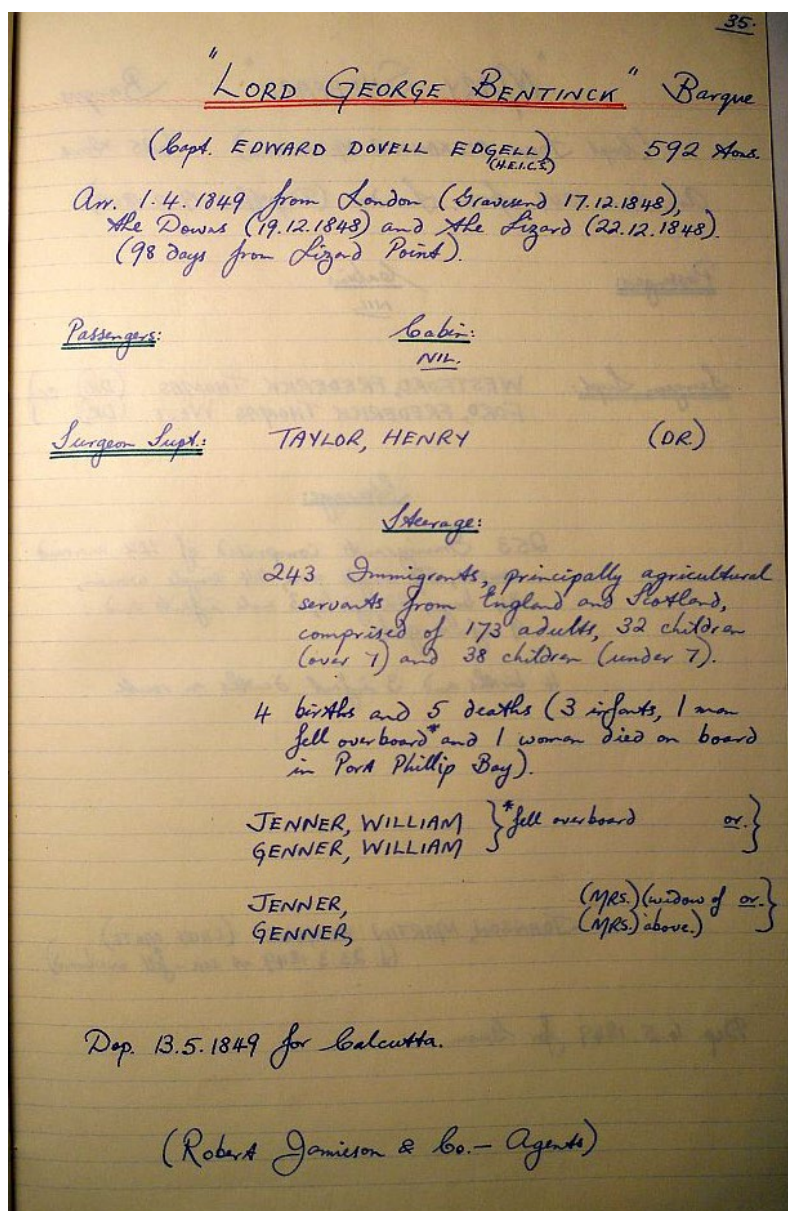 35.
"LORD GEORGE BENTINCK" Barque
(Capt. EDWARD DOVELL EDGELL) 592 Tons.
(H.E.I.C.S.)
Arr. 1.4.1849 from London (Gravesend 17.12.1848),
the Downs (19.12.1848) and the Lizard (22.12.1848).
(98 days from Lizard Point).
Passengers: Cabin:
NIL.
Surgeon Supt.: TAYLOR, HENRY (DR.)
Steerage:
243 Immigrants, principally agricultural
servants from England and Scotland,
comprised of 173 adults, 32 children
(over 7) and 38 children (under 7).
4 births and 5 deaths (3 infants, 1 man
fell overboard* and 1 woman died on board
in Port Phillip Bay).
JENNER, WILLIAM } *fell overboard or. }
GENNER, WILLIAM
JENNER, (MRS.) (widow of or. }
GENNER, (MRS.) above.)
Dep. 13.5.1849 for Calcutta.
(Robert Jamieson & Co. - Agents)